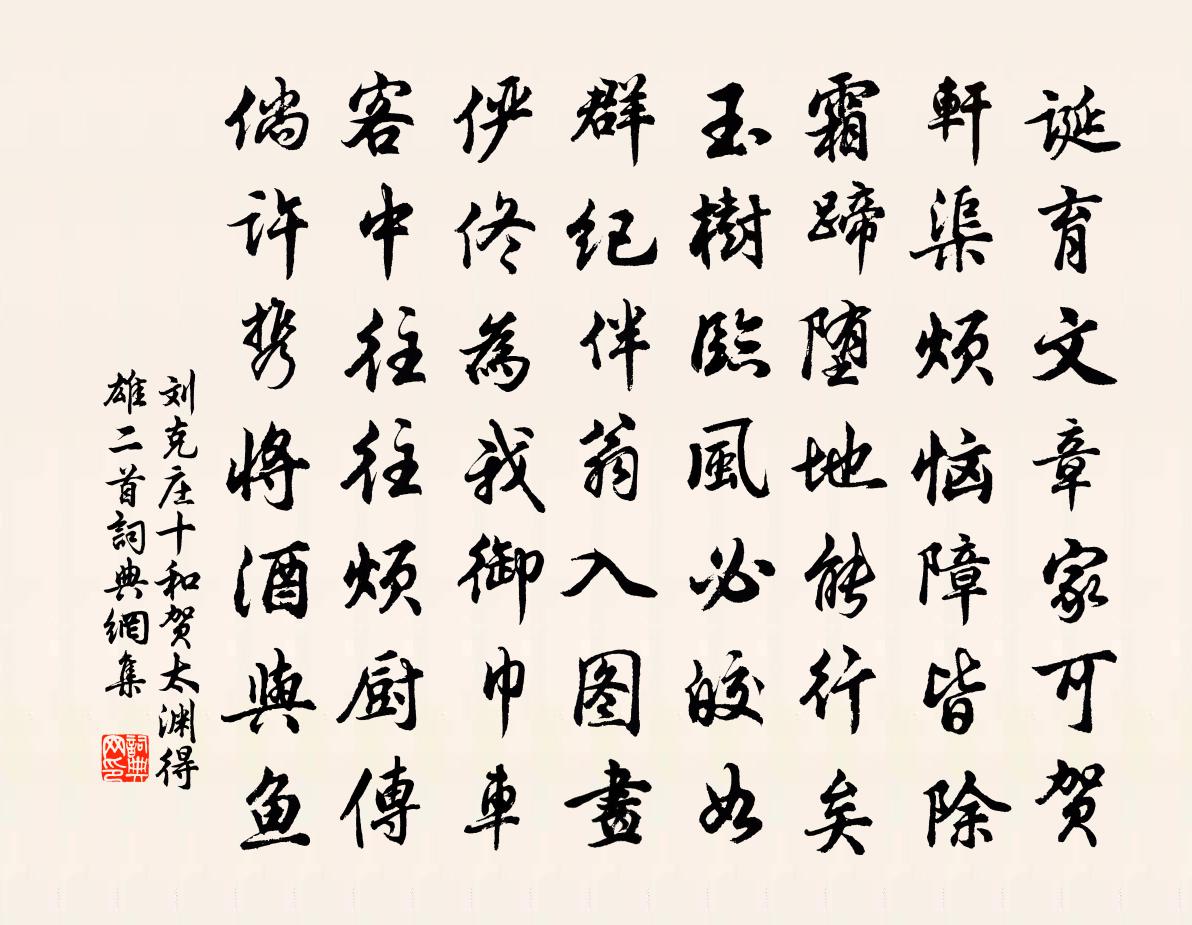 诞育文章家可贺
軒渠烦恼障皆除
霜蹄堕地能行矣
玉樹臨風必皎如
群纪伴翁入图畫
伊佟為我御巾車
客中往往烦厨傳
倘许携将酒與鱼
刘克庄十和贺太渊得
雄二首詞典網集
詞典网印